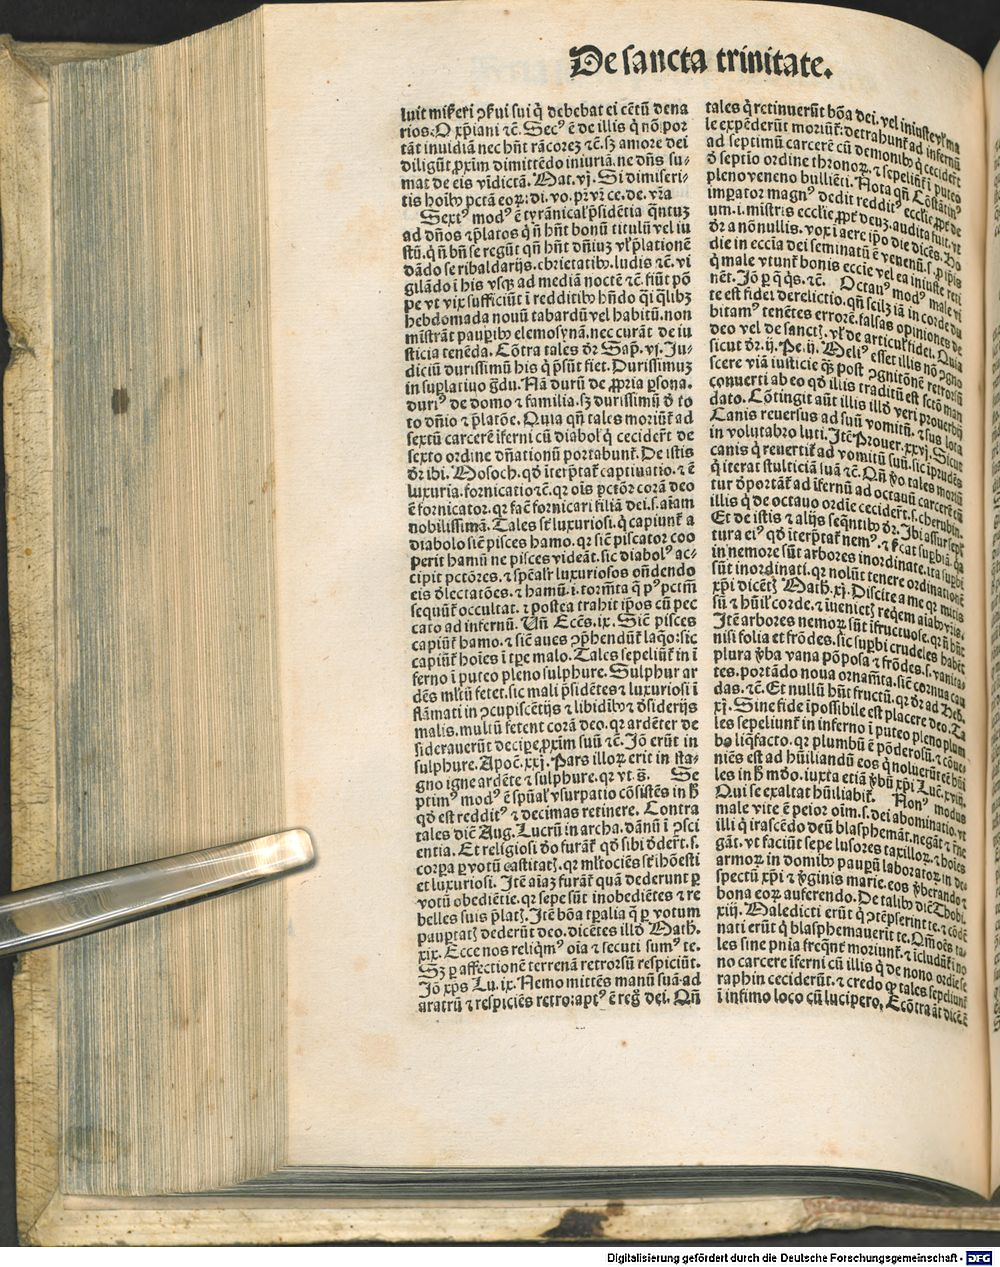 De sancta trinitate.
luit miſereri ↄſerui sui q̄ debebat ei cētū dena
rios. O xp̄iani ⁊c̄. Secꝰ ē de illis q̇ nō por
tāt inuidiā nec hn̄t rācoreꝫ ⁊c̄. sꝫ amore dei
diligūt ꝓximū dimittēdo iniuriā. ne dn̄s su-
mat de eis vīdictā. Mat. vj. Si dimiseri-
tis hoībꝰ pctā eoꝝ: di. vo. pr̄ vr̄ ce. de. vr̄a
Sextꝰ modꝰ ē tyrānical' p̄sidētia q̄ntuꝫ
ad dn̄os ⁊ p̄latos qn̄ hn̄t bonū titulū vel iu
stū. qn̄ bn̄ se regūt qn̄ hn̄t dn̄iuꝫ vl' p̄lationē
dādo se ribaldarijs. ebrietatibꝰ. ludis ⁊c̄. vi
gilādo i his vsqꝫ ad mediā noctē ⁊c̄. fiūt pō
pe vt vix sufficiūt i redditibꝰ hn̄do q̇i q̄libꝫ
hebdomada nouū tabardū vel habitū. non
mīstrāt pauꝑibꝰ elemosynā. nec curāt de iu
sticia tenēda. Cōtra tales dr̄ Sap̄. vj. Ju-
diciū durissimū his q̇ p̄sūt fiet. Durissimuꝫ
in suꝑlatiuo g̊du. Nā durū de ꝓpria ꝑsona.
duriꝰ de domo ⁊ familia. sꝫ durissimū ď to
to dn̄io ⁊ p̄latōe. Quia qn̄ tales moriūt̄ ad
sextū carcerē īferni cū diabol' q̇ cecider̄t de
sexto ordine dn̄ationū portabunt̄. De istis
dr̄ ibi. Mosoch. qď īterp̄tat̄ captiuatio. ⁊ ē
luxuria. fornicatio ⁊c̄. qr ois pctōr corā deo
ē fornicator. qr fac̄ fornicari filiā dei. s. aīam
nobilissimā. Tales sūt luxuriosi. q̇ capiunt̄ a
diabolo sic̄ pisces hamo. qr sic̄ piscator coo
perit hamū ne pisces videāt. sic diabolꝰ ac-
cipit pctōres. ⁊ sp̄ealr̄ luxuriosos on̄dendo
eis ďlectatōes. ⁊ hamū. i. tormēta q̄ ꝑ ꝑpctm̄
sequūt̄ occultat. ⁊ postea trahit ip̄os cū pec
cato ad infernū. Vn̄ Ecēs. ix. Sic̄ pisces
capiūt̄ hamo. ⁊ sic̄ aues ↄp̄hendūt̄ laq̄o: sic
capiūt̄ hoīes ī tꝑe malo. Tales sepeliūt̄ in ī
ferno ī puteo pleno sulphure. Sulphur ar
dēs ml'tū fetet. sic mali p̄sidētes ⁊ luxuriosi ī
flāmati in ↄcupiscētijs ⁊ libidībꝰ ⁊ ďsiderijs
malis. multū fetent corā deo. qr ardēter de
siderauerūt deciꝑe ꝓximū suū ⁊c̄. Jō erūt in
sulphure. Apoc̄. xxj. Pars illoꝝ erit in sta-
gno igne ardēte ⁊ sulphure. qr vt. s̄. Se
ptimꝰ modꝰ ē sp̄ual' vsurpatio cōsistēs in ħ
qď est redditꝰ ⁊ decimas retinere. Contra
tales dic̄ Aug. Lucrū in archa. dānū ī ↄsci
entia. Et religiosi ď furāt̄ qď sibi ďder̄t. s.
corꝑa ꝑ votū castitatꝭ. qr ml'tociēs sūt ihōesti
et luxuriosi. Jtē aīaꝫ furāt̄ quā dederunt ꝑ
votū obediētie. qr sepe sūt inobediētes ⁊ re
belles suis p̄latꝭ. Jtē bōa tꝑalia q̄ ꝑ votum
pauꝑtatꝭ dederūt deo. dicētes illď Math.
xix. Ecce nos reliq̇mꝰ oīa ⁊ secuti sumꝰ te.
Sꝫ ꝑ affectionē terrenā retrorsū respiciūt.
Jō xp̄s Lu. ix. Nemo mittēs manū suā ad
aratrū ⁊ respiciēs retro: aptꝰ ē regꝭ dei. Qn̄
tales q̇ retinuerūt bōa dei. vel iniuste vl' ma
le expēderūt moriūt̄: detrahunt̄ ad infernū
ad septimū carcerē cū demonibꝰ q̇ cecider̄t
ď septīo ordine thronoꝝ. ⁊ sepeliūt̄ ī puteo
pleno veneno bulliēti. Nota qn̄ Cōstātinꝰ
imꝑator magnꝰ dedit redditꝰ ecclīe ꝓpt̄ de
um. i. mīstris ecclīe ꝓpt̄ deuꝫ. audita fuit. vt
dr̄ a nōnullis. vox ī aere ip̄o die dicēs. Ho
die in ecclīa dei seminatū ē venenū. s. ip̄is
q̇ male vtunt̄ bonis eccīe vel ea iniuste reti
nēt. Jō ꝑ q̄ q̇s. ⁊c̄. Octauꝰ modꝰ male vi
te est fidei derelictio. qn̄ scilꝫ iā in corde du
bitamꝰ tenētes errorē. falsas opiniones de
deo vel de sanctꝭ. vl' de articul' fidei. Quia
sicut dr̄. ij. Pe. ij. Meliꝰ esset illis nō ↄgno
scere viā iusticie q̄ꝫ post ↄgnitōnē retrorsū
conuerti ab eo qď illis traditū est scto man
dato. Cōtingit aūt illis illď veri prouerbij
Canis reuersus ad suū vomitū. ⁊ sus lota
in volutabro luti. Jtē Prouer. xxvj. Sicut
canis q̇ reuertit̄ ad vomitū suū. sic īprudēs
q̇ iterat stulticiā suā ⁊c̄. Qn̄ ꝟo tales moriū
tur ďportāt̄ ad īfernū ad octauū carcerē cū
illis q̇ de octauo ordīe cecider̄t. s. cherubin.
Et de istis ⁊ alijs seq̄ntibꝰ dr̄. Jbi assur sepl'
tura eiꝰ qď īterp̄tat̄ nemꝰ. ⁊ sig̃cat suꝑbiā. q̇a
in nemore sūt arbores inordinate. ita suꝑbi
sūt inordinati. qr nolūt tenere ordinationē
xp̄i dicētꝭ Math. xj. Discite a me qr mitis
sū ⁊ hūil' corde. ⁊ īuenietꝭ requiē aīabꝰ vr̄is.
Jtē arbores nemoꝝ sūt īfructuose. qr nō hn̄t
nisi folia et frōdes. sic suꝑbi crudeles habēt
plura ꝟba vana pōposa ⁊ frōdes. s. vanita-
tes. portādo noua ornam̄ta. sic̄ cornua cau
das. ⁊c̄. Et nullū hn̄t fructū. qr dr̄ ad Heb.
xj. Sine fide īpossibile est placere deo. Ta
les sepeliunt̄ in inferno ī puteo pleno plum
bo liq̄facto. qr plumbū ē pōderosū. ⁊ cōue-
niēs est ad hūiliandū eos q̇ noluerūt eē hūi
les in ħ mūdo. iuxta etiā ꝟbū xp̄i Luc̄. xviij.
Qui se exaltat hūiliabit̄. Nonꝰ modus
male vite ē peior oīm. s. dei abominatio. vt
illi q̇ irascēdo deū blasphemāt. negāt ⁊ r̄ne
gāt. vt faciūt sepe lusores taxilloꝝ. ⁊ hoīes
armoꝝ in domibꝰ pauꝑū laboratoꝝ in de-
spectū xp̄i ⁊ ꝟginis marie. eos ꝟberando ⁊
bona eoꝝ auferendo. De talibꝰ dic̄ Thobi.
xiij. Maledicti erūt q̇ ↄtēpserint te. ⁊ cōdē
nati erūt q̇ blasphemauerīt te. Qm̄ oēs ta-
les sine pn̄ia freq̄nt̄ moriunt̄. ⁊ īcludūt̄ ī no
no carcere īferni cū illis q̇ de nono ordīe se
raphin ceciderūt. ⁊ credo qꝙ tales sepeliunt̄
ī infimo loco cū lucipero. Ecōtra āt dicē ē
Digitalisierung gefördert durch die Deutsche Forschungsgemeinschaft - DFG